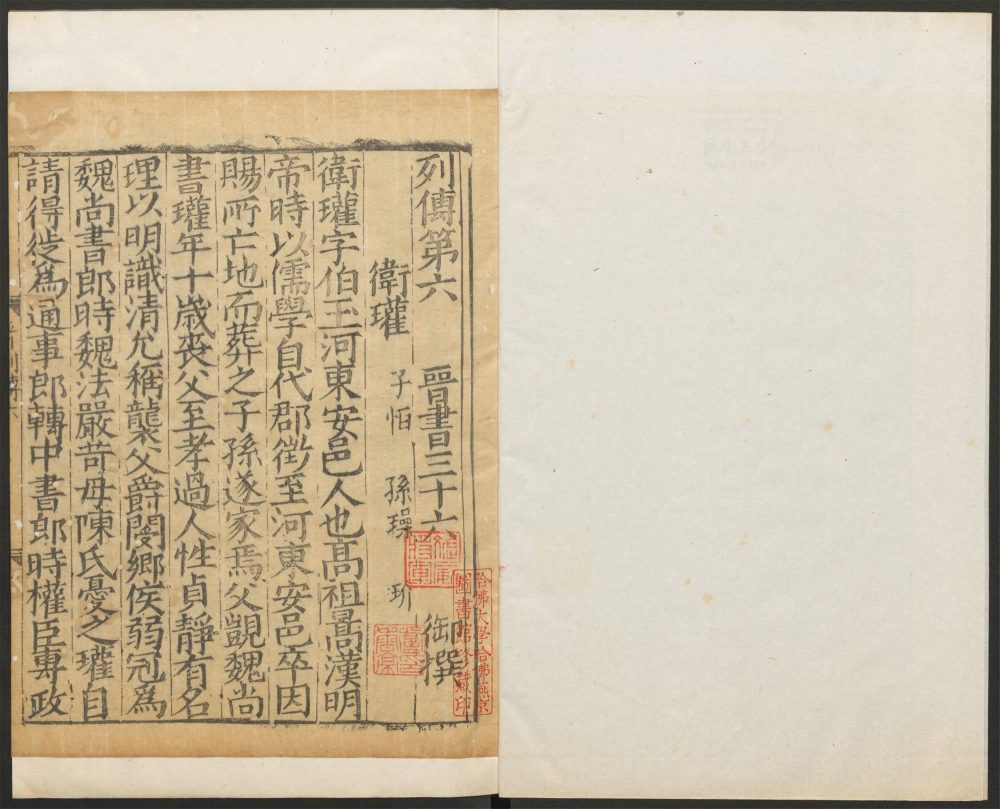 列傳第六 晉書三十六 御撰
衛瓘 子恒 孫璪 玠
衛瓘字伯玉河東安邑人也高祖暠漢明
帝時以儒學自代郡徵至河東安邑卒因
賜所亡地而葬之子孫遂家焉父覬魏尚
書瓘年十歲喪父至孝過人性貞靜有名
理以明識清允稱襲父爵閿鄉侯弱冠爲
魏尚書郎時魏法嚴苛母陳氏憂之瓘自
請得徙爲通事郎轉中書郎時權臣專政
哈佛大學哈佛燕京
圖書館珍藏印